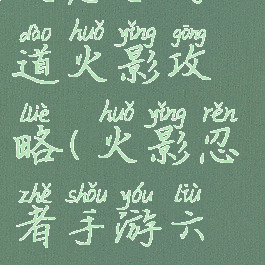 dào huǒ yǐng gōng
道火影攻
lüè huǒ yǐng rěn
略(火影忍
zhě shǒu yóu liù
者手游六